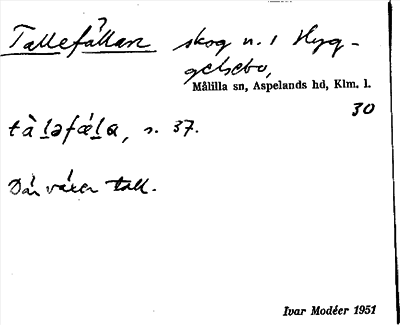 Tallefállan skog n. 1 Hyg-
gelsebo,
Målilla sn, Aspelands hd, Klm. l.
30
s. 37.
Där växer tall.
Ivar Modéer 1951